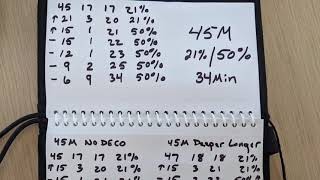 45 17 17 21%
↑ 21 3 20 21%
↑ 15 1 21 50%
- 15 1 22 50%
- 12 1 23 50%
- 9 2 25 50%
- 6 9 34 50%
45M
21%/50%
34Min
45M NO DECO
45 17 17 21%
↑ 15 3 20 21%
- 15 1 21
45M Deeper Longer
47 18 18 21%
↑ 15 3 21 21%
- 15 2